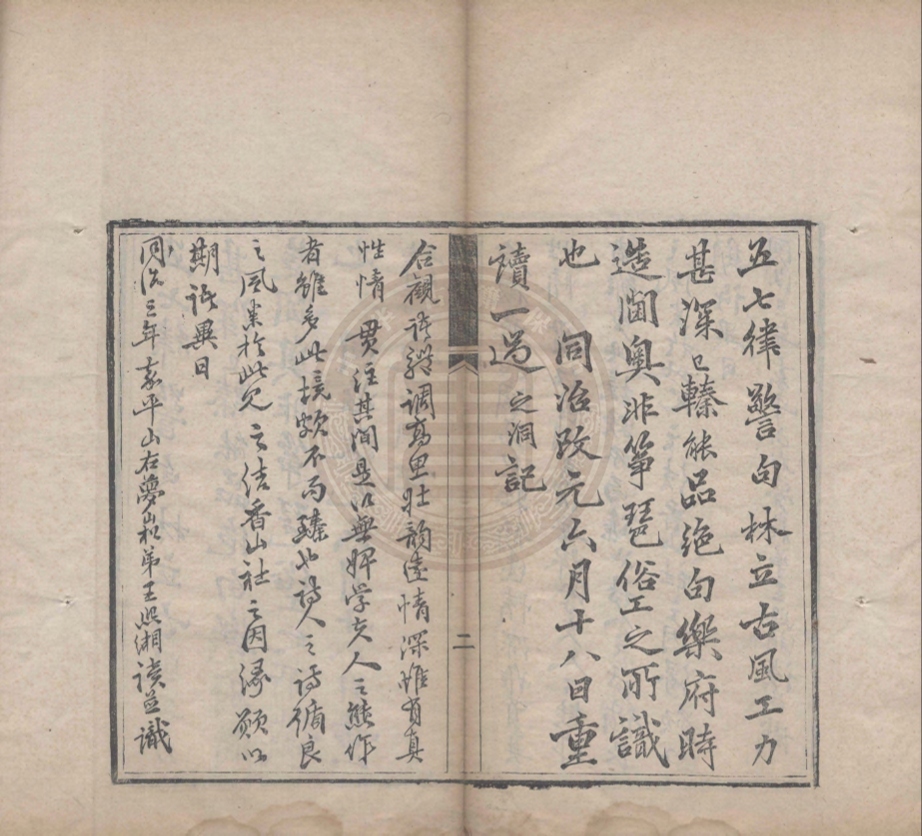 五七律警句林立古風工力
甚深已臻能品絕句樂府時
造閫奧非箏琶俗工之所識
也　同治改元六月十八日重
讀一過　之洞記
二
合觀諸體調高思壯韻遠情深惟有真
性情　貫注其間是以無婢學夫人之態作
者雖多此境頗不而臻也詩人之詩循良
之風業於此見之結香山社之因緣願以
期諸異日
同治三年嘉平山右夢山弟王熙湘讀並識